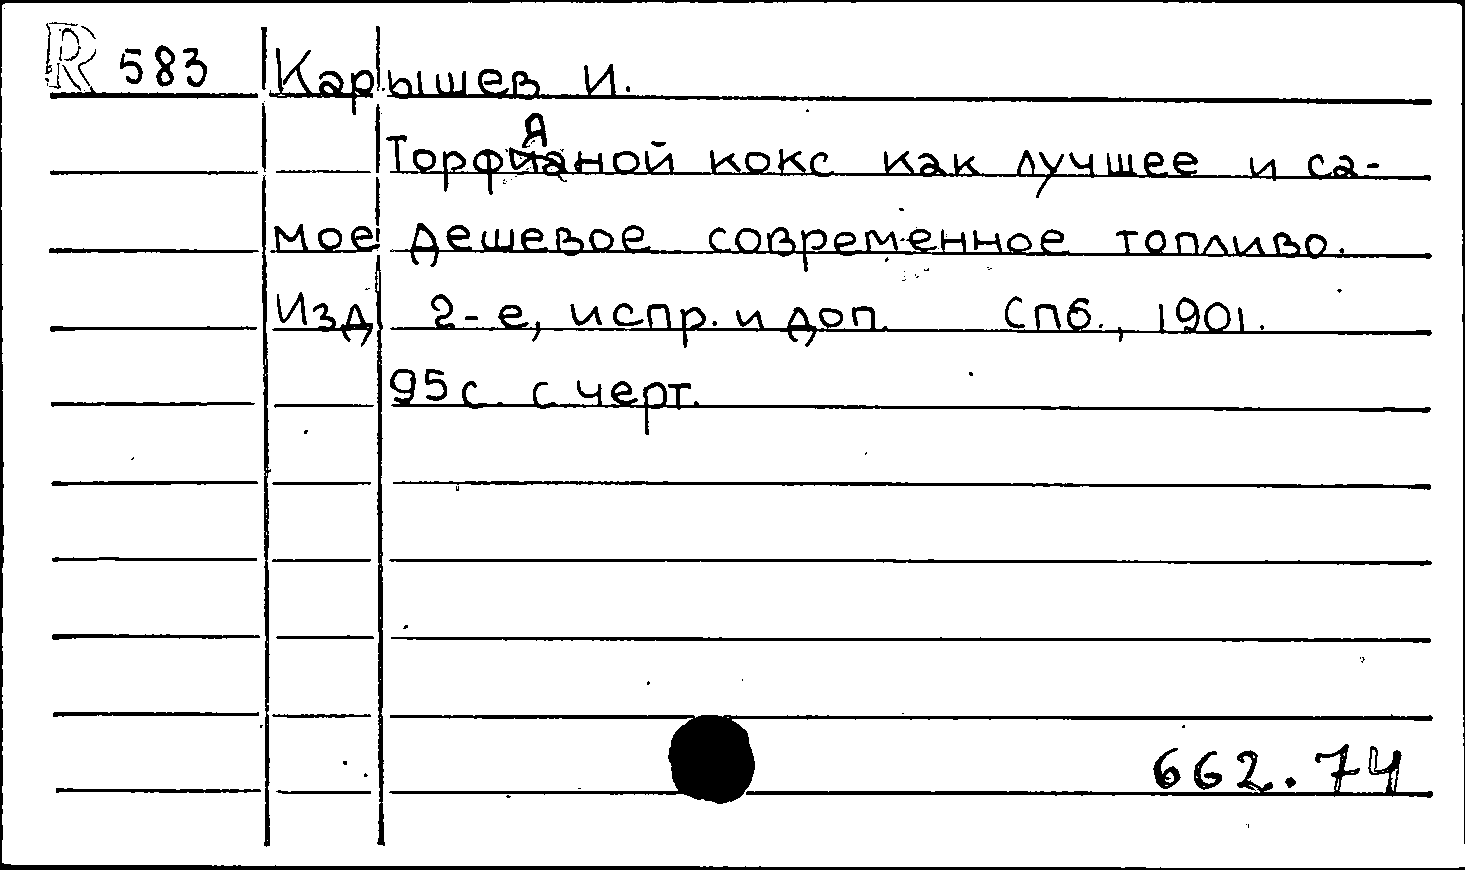 R 583 Карышев И.
Торфяной кокс как лучшее и са-
мое дешевое современное топливо.
Изд. 2-е, испр. и доп. Спб., 1901.
95 с. с черт.
662.74